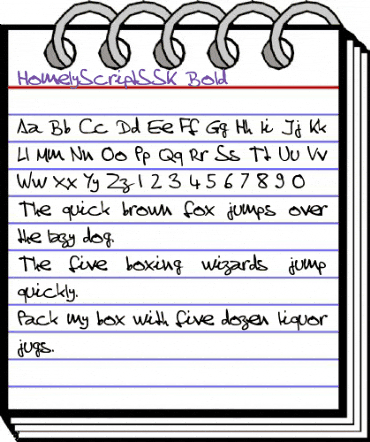 HomelyScriptSSK Bold
Aa Bb Cc Dd Ee Ff Gg Hh Ii Jj Kk
Ll Mm Nn Oo Pp Qq Rr Ss Tt Uu Vv
Ww Xx Yy Zz 1 2 3 4 5 6 7 8 9 0
The quick brown fox jumps over
the lazy dog.
The five boxing wizards jump
quickly.
Pack my box with five dozen liquor
jugs.